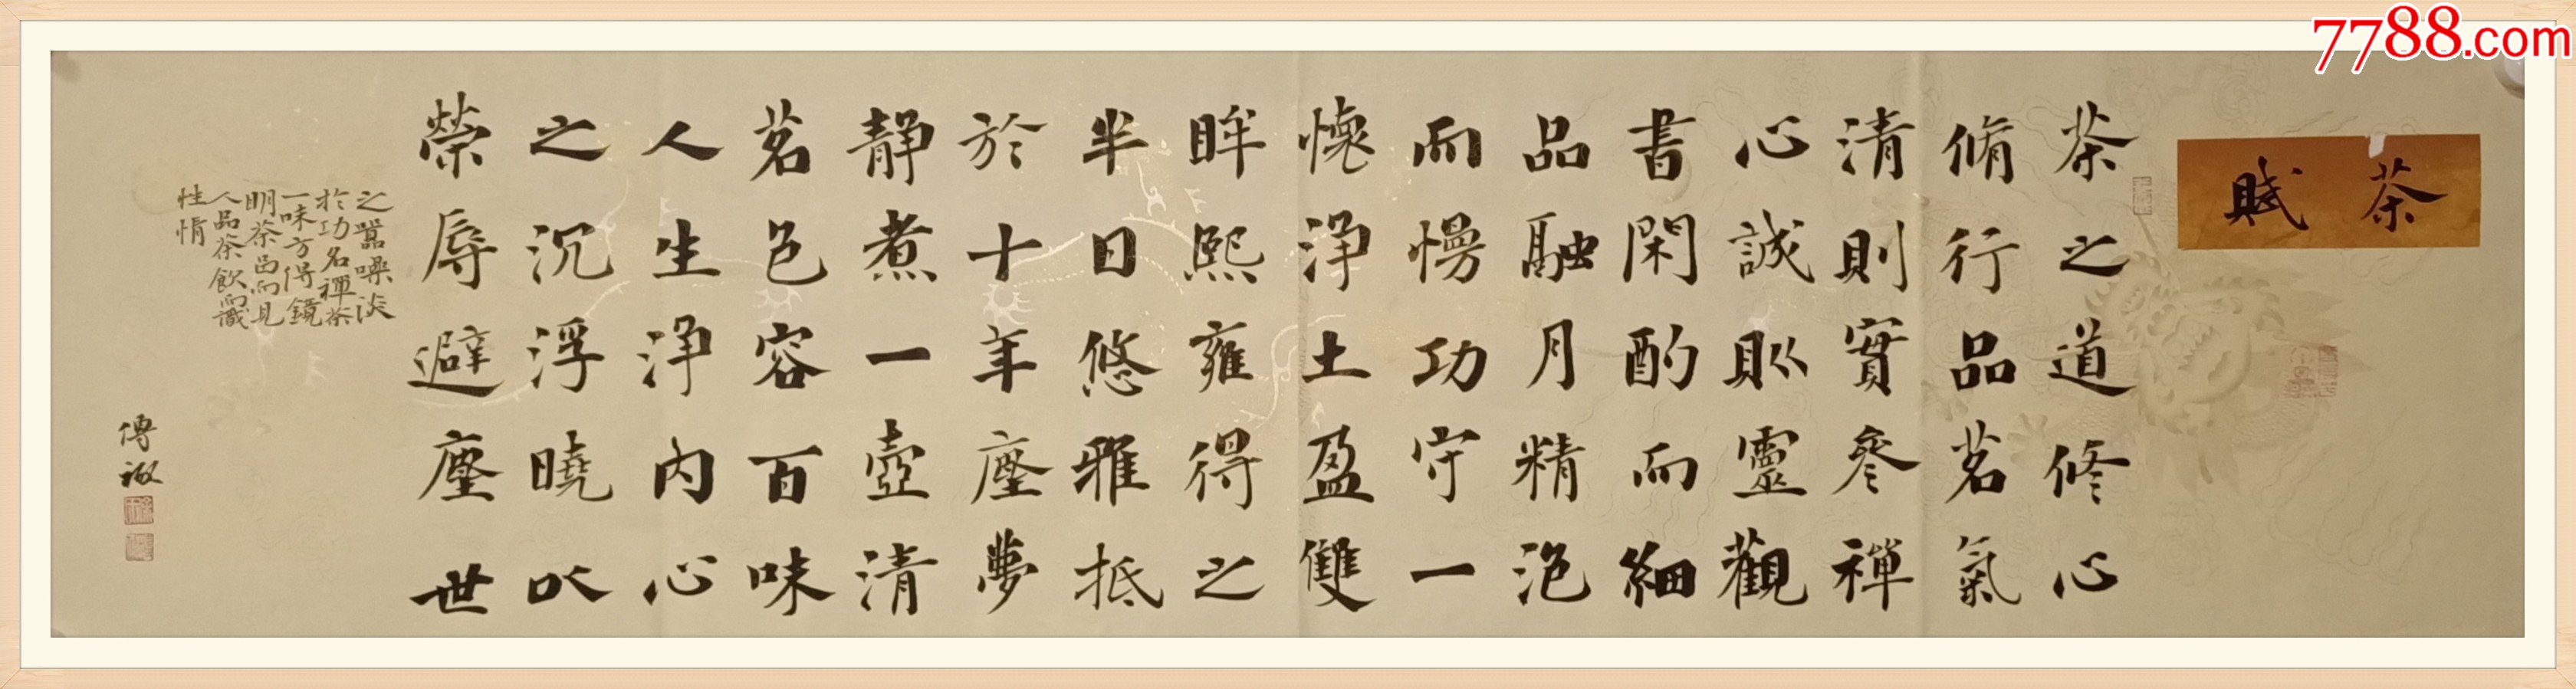 7788.com
茶賦
茶之道修心
脩行品茗氣
清則實參禪
心誠貺靈觀
書閑酌而細
品融月精浥
而慢功守一
懷淨土盈雙
眸熙雍得之
半日悠雅抵
於十年塵夢
靜煮一壺清
茗色容百味
人生淨內心
之沉浮曉以
榮辱避塵世
之囂嗓淡
於功名禪茶
一味方得鏡
明茶品而見
人品茶飲識
性情
傅